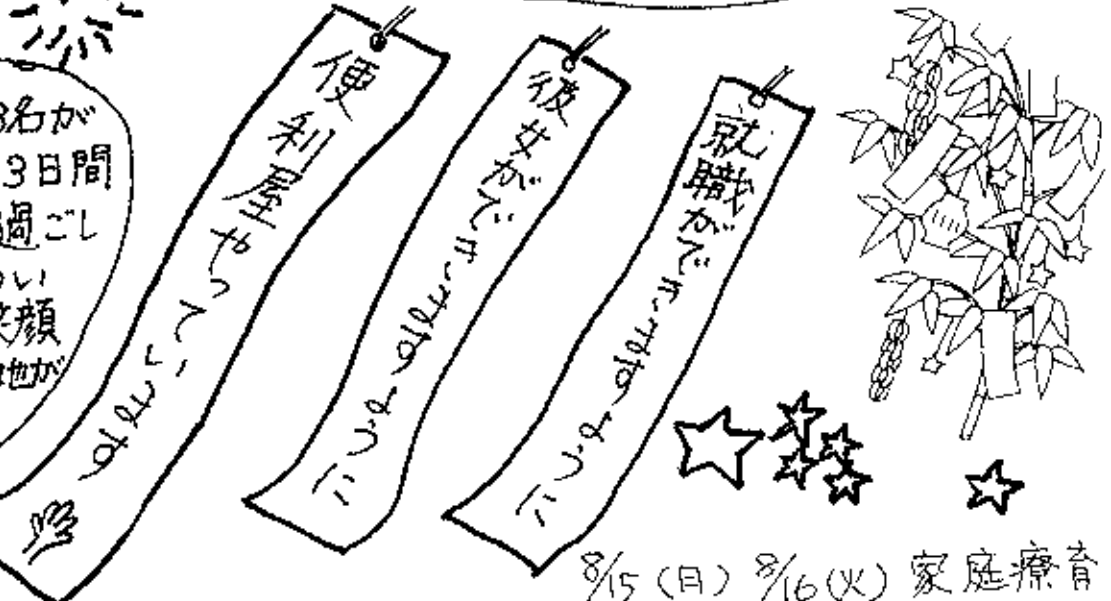 8名が
3日間
過ごし
い
笑顔
地が
便利屋やっています
彼女ができますように
就職ができますように
8/15(日) 8/16(火) 家庭療育